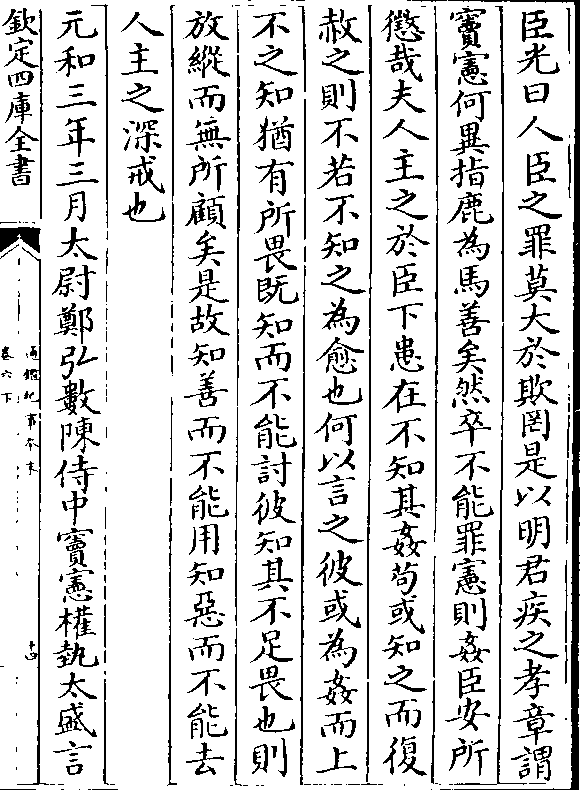 臣光曰人臣之罪莫大於欺罔是以明君疾之孝章謂
竇憲何異指鹿為馬善矣然卒不能罪憲則姦臣安所
懲哉夫人主之於臣下患在不知其姦茍或知之而復
赦之則不若不知之為愈也何以言之彼或為姦而上
不之知猶有所畏既知而不能討彼知其不足畏也則
放縱而無所顧矣是故知善而不能用知惡而不能去
人主之深戒也
元和三年三月太尉鄭弘數陳侍中竇憲權埶太盛言
欽定四庫全書
通鑑紀事本末
卷六下
十四